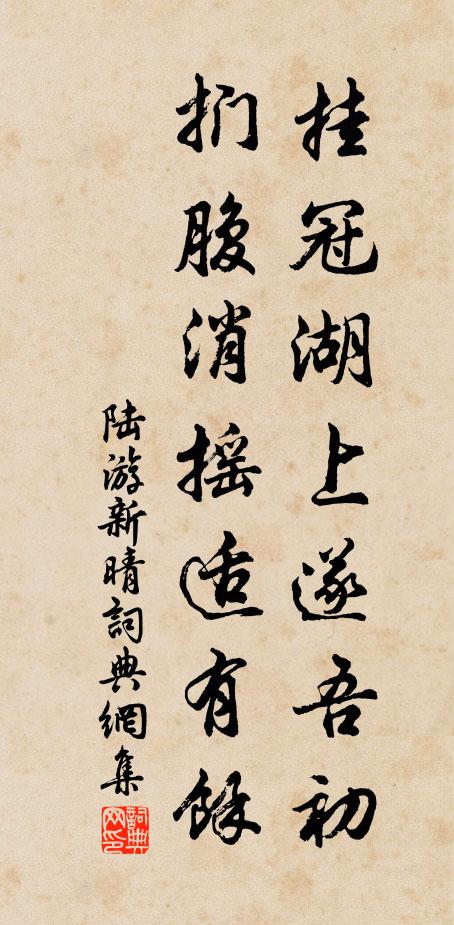 挂冠湖上遂吾初
扪腹消摇适有馀
陆游新晴詞典網集
詞典网印